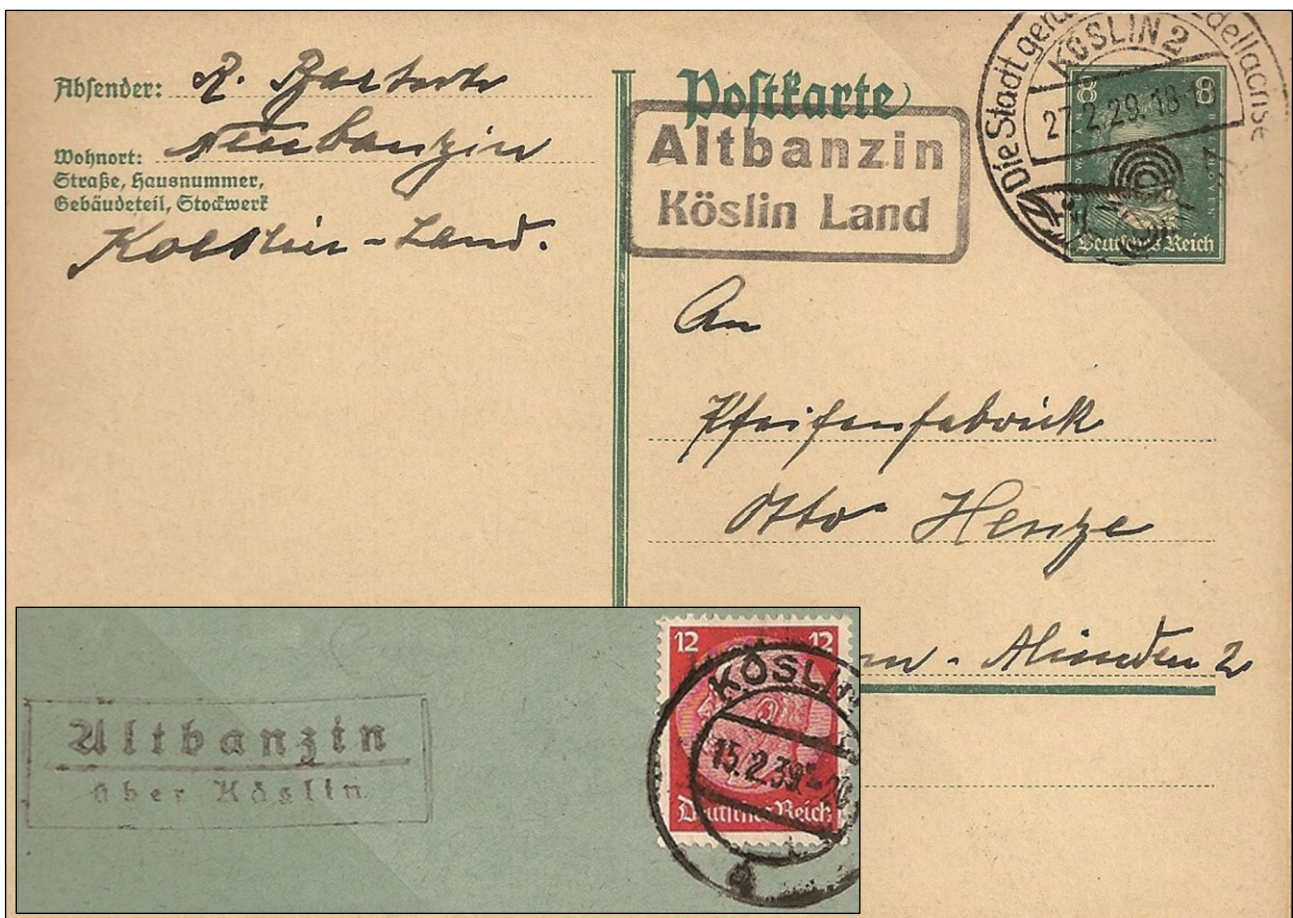 Absender: R.
Wohnort: Neubanzin
Straße, Hausnummer,
Gebäudeteil, Stockwerk
Koeslin-Land.
Postkarte
Altbanzin
Köslin Land
Die Stadt
KÖSLIN 2
27.2.29.18
8 8
Deutsches Reich
An
Pfeifenfabrik
Otto Henze
Münden 2
Altbanzin
über Köslin
12 12
KÖSLIN
15.2.39
Deutsches Reich
d